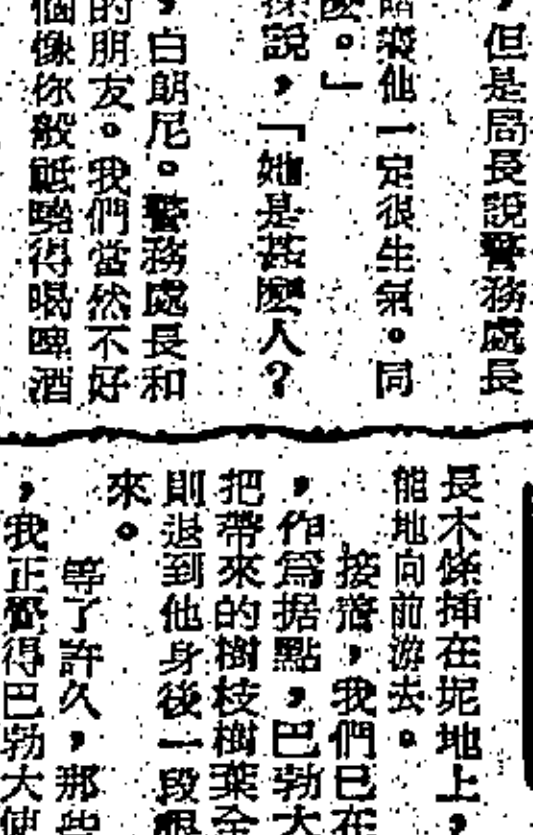 ，但是局長說警務處長
他一定很生氣。同
麼。」
說，「她是甚麼人？
，白朗尼。警務處長和
的朋友。我們當然不好
個像你般能曉得喝啤酒
長木條插在坭地上，
能地向前游去。
接着，我們已在
，作爲据點，巴勃大
把帶來的樹枝樹葉全
則退到他身後一段
來。
等了許久，那些
，我正覺得巴勃大使